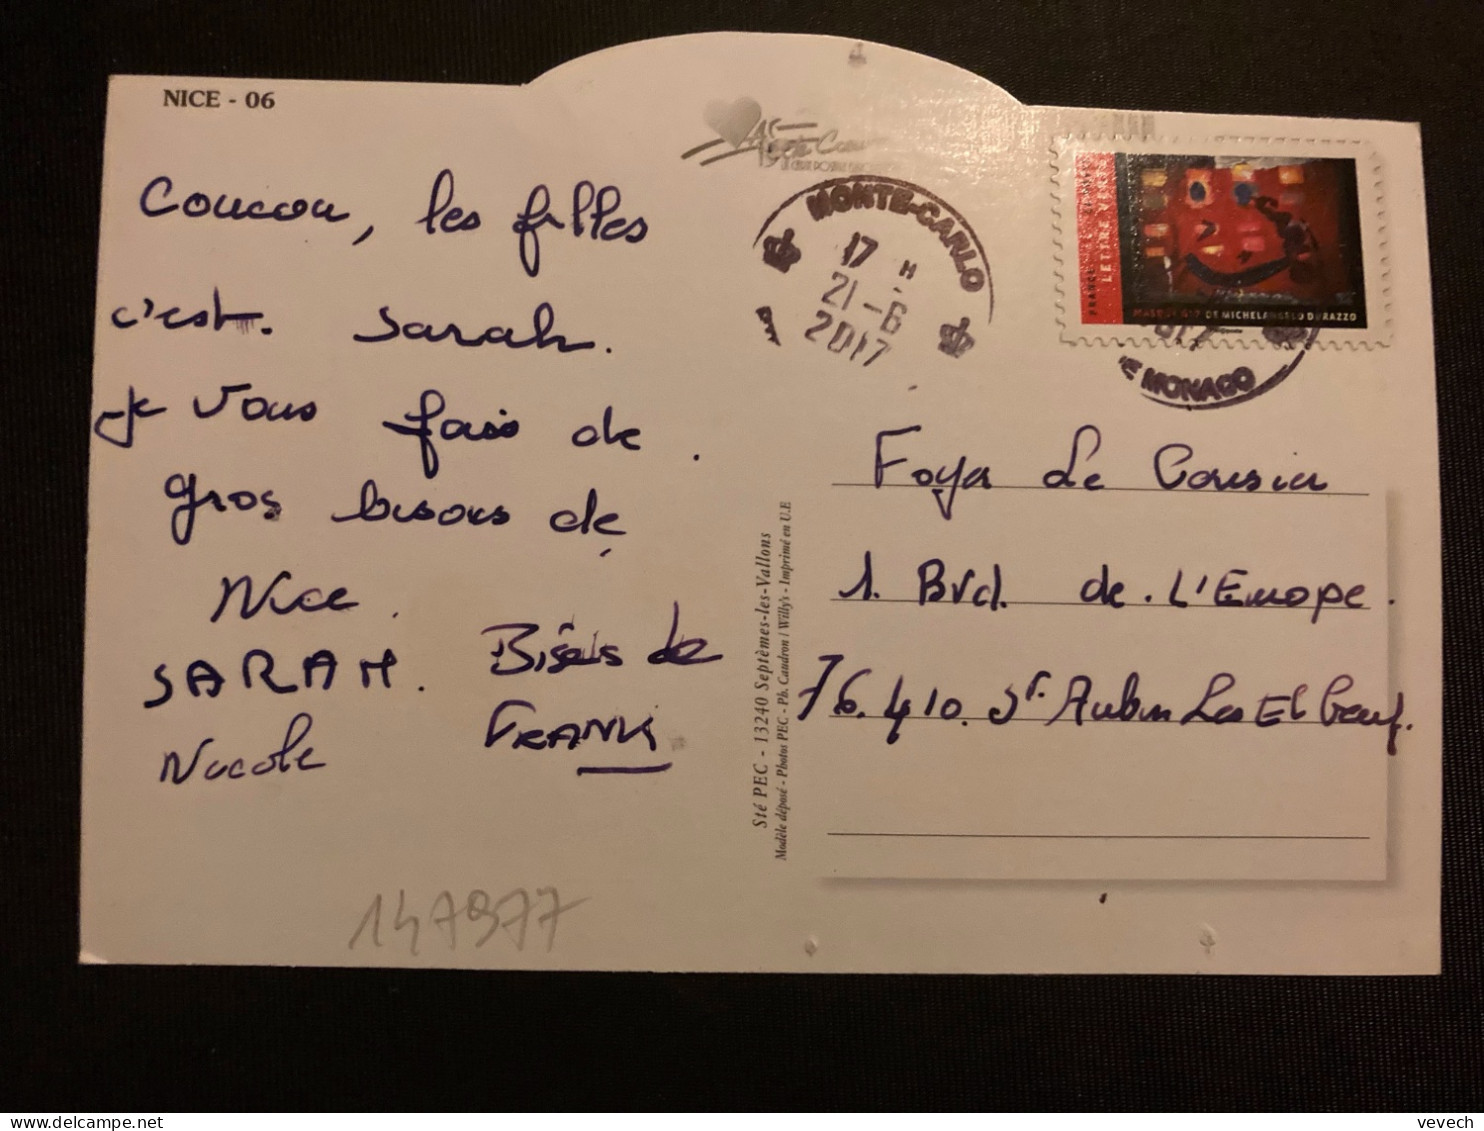 NICE - 06
Coucou, les filles
c'est. Sarah.
je vous fais de.
gros bisous de
Nice.
SARAH. Bisous de
Nicole FRANK
147977
Sté PEC - 13240 Septèmes-les-Vallons
Modèle déposé - Photos PEC - Ph. Caudron / Willy's - Imprimé en U.E
MONTE-CARLO
17 H
21-6
2017
FRANCE
LETTRE VERTE
DE MICHELANGELO DURAZZO
DE MONACO
Foyer de
1. Bvd. de. L'Europe.
76.410. St Aubin Les Elbeuf.
vevech